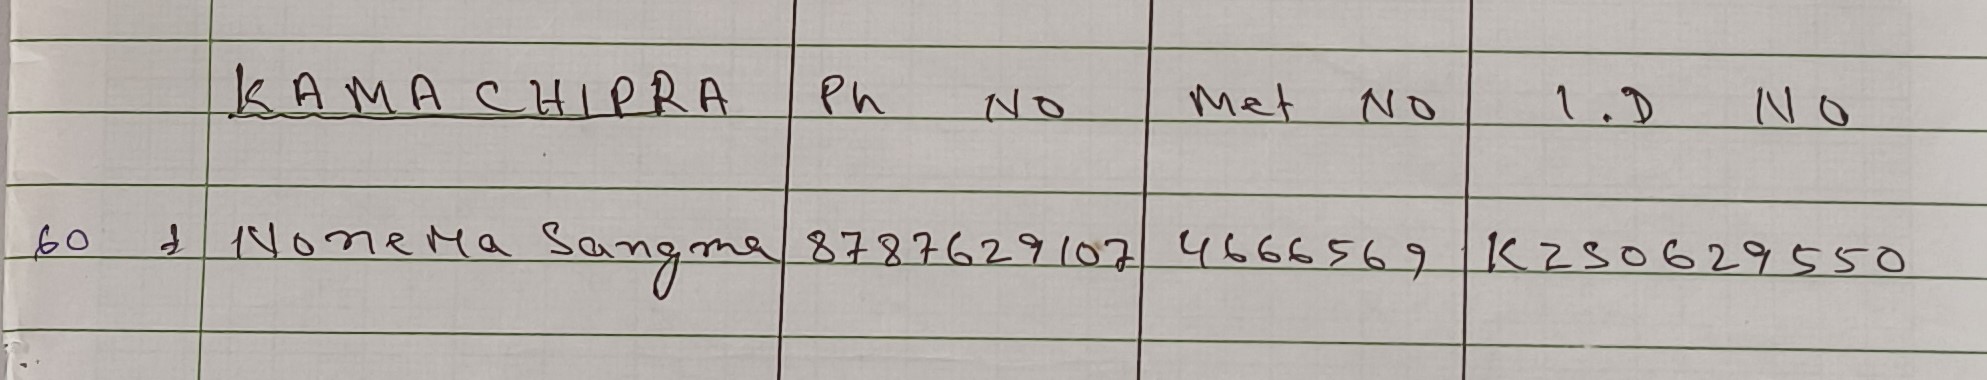 KAMACHIPRA Ph NO Met NO I.D NO
60 1 Nonetta Sangma 8787629107 4666569 KZS0629550